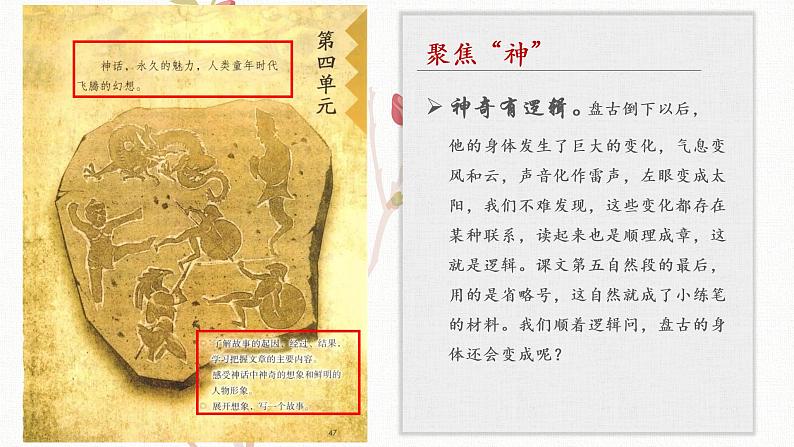 神话，永久的魅力，人类童年时代
飞腾的幻想。
第四单元
了解故事的起因、经过、结果，
学习把握文章的主要内容。
感受神话中神奇的想象和鲜明的
人物形象。
展开想象，写一个故事。
47
聚焦“神”
➢ 神奇有逻辑。盘古倒下以后，
他的身体发生了巨大的变化，气息变
风和云，声音化作雷声，左眼变成太
阳，我们不难发现，这些变化都存在
某种联系，读起来也是顺理成章，这
就是逻辑。课文第五自然段的最后，
用的是省略号，这自然就成了小练笔
的材料。我们顺着逻辑问，盘古的身
体还会变成呢？